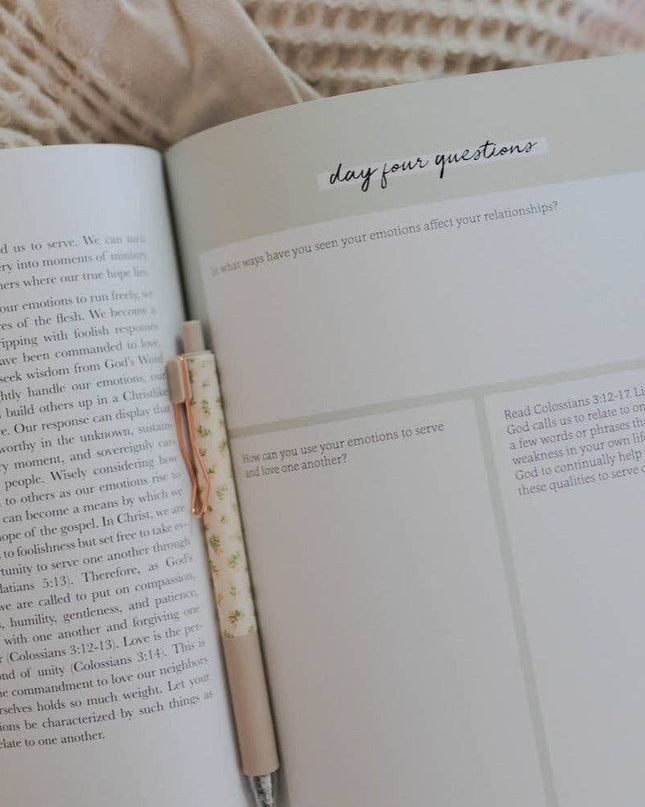 d us to serve. We can turn
ery into moments of ministry
hers where our true hope lies.
our emotions to run freely, we
res of the flesh. We become a
ripping with foolish responses
ave been commanded to love.
seek wisdom from God's Word
htly handle our emotions, our
build others up in a Christlike
e. Our response can display that
worthy in the unknown, sustains
y moment, and sovereignly car
people. Wisely considering how
to others as our emotions rise to
can become a means by which we
hope of the gospel. In Christ, we are
to foolishness but set free to take
tunity to serve one another through
latians 5:13). Therefore, as God's
we are called to put on compassion,
, humility, gentleness, and patience,
with one another and forgiving one
r (Colossians 3:12-13). Love is the per-
ond of unity (Colossians 3:14). This is
he commandment to love our neighbors
rselves holds so much weight. Let your
ions be characterized by such things as
elate to one another.
day four questions
In what ways have you seen your emotions affect your relationships?
How can you use your emotions to serve
and love one another?
Read Colossians 3:12-17. Li
God calls us to relate to on
a few words or phrases tha
weakness in your own life
God to continually help
these qualities to serve o